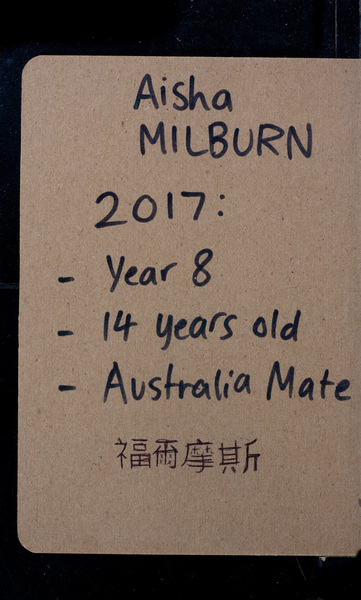 Aisha
MILBURN
2017:
- Year 8
- 14 years old
- Australia Mate
福爾摩斯